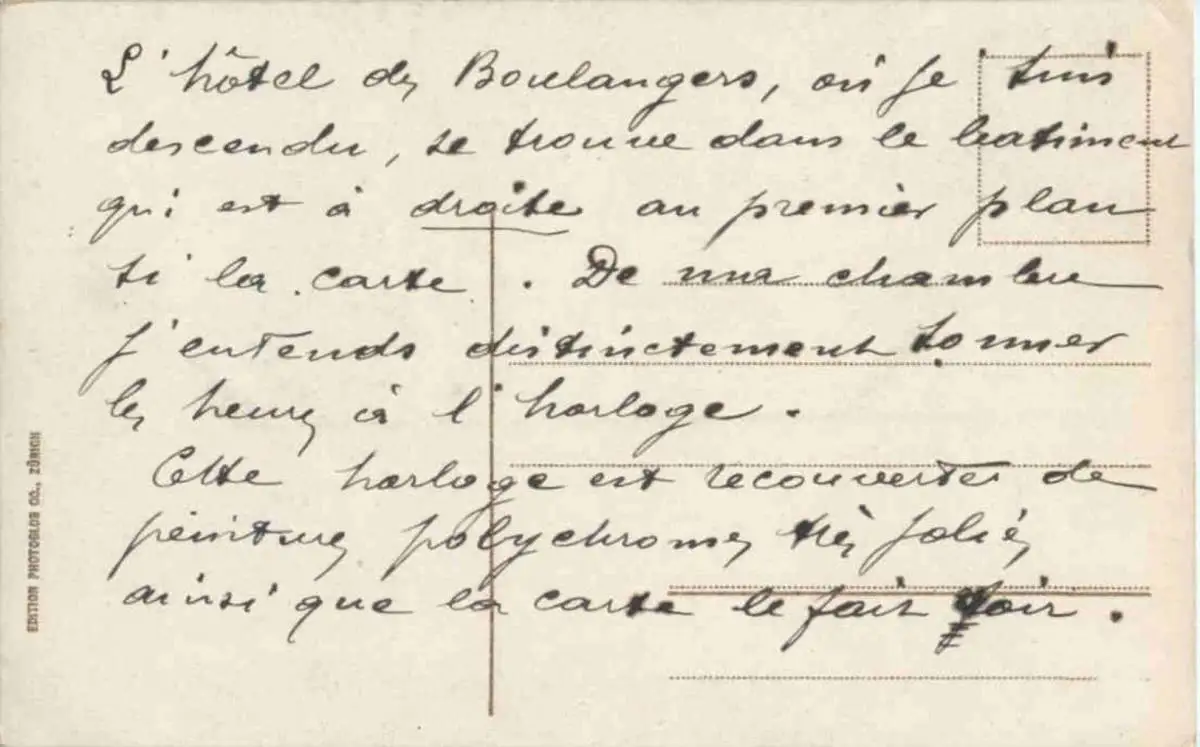 L'hôtel des Boulangers, où je suis
descendu, se trouve dans le batiment
qui est à droite au premier plan
si la carte. De ma chambre
j'entends distinctement sonner
les heures à l'horloge.
Cette horloge est recouverte de
peintures polychromes très jolies
ainsi que la carte le fait voir.
EDITION PHOTOGLOB CO., ZÜRICH